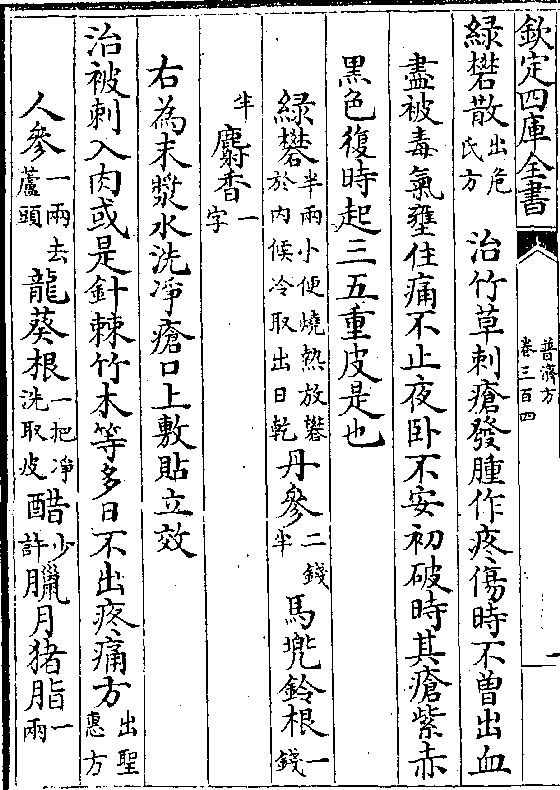 欽定四庫全書
普濟方
卷三百四
綠礬散出危氏方 治竹草刺瘡發腫作疼傷時不曽出血
盡被毒氣壅住痛不止夜卧不安初破時其瘡紫赤
黑色復時起三五重皮是也
綠礬半兩小便燒熱放礬於内候冷取出日乾 丹參二錢半 馬兠鈴根一錢
半 麝香一字
右為末漿水洗凈瘡口上敷貼立效
治被刺入肉或是針棘竹木等多日不出疼痛方出聖惠方
人參一兩去蘆頭 龍葵根一把凈洗取皮 醋少許 臘月猪脂一兩